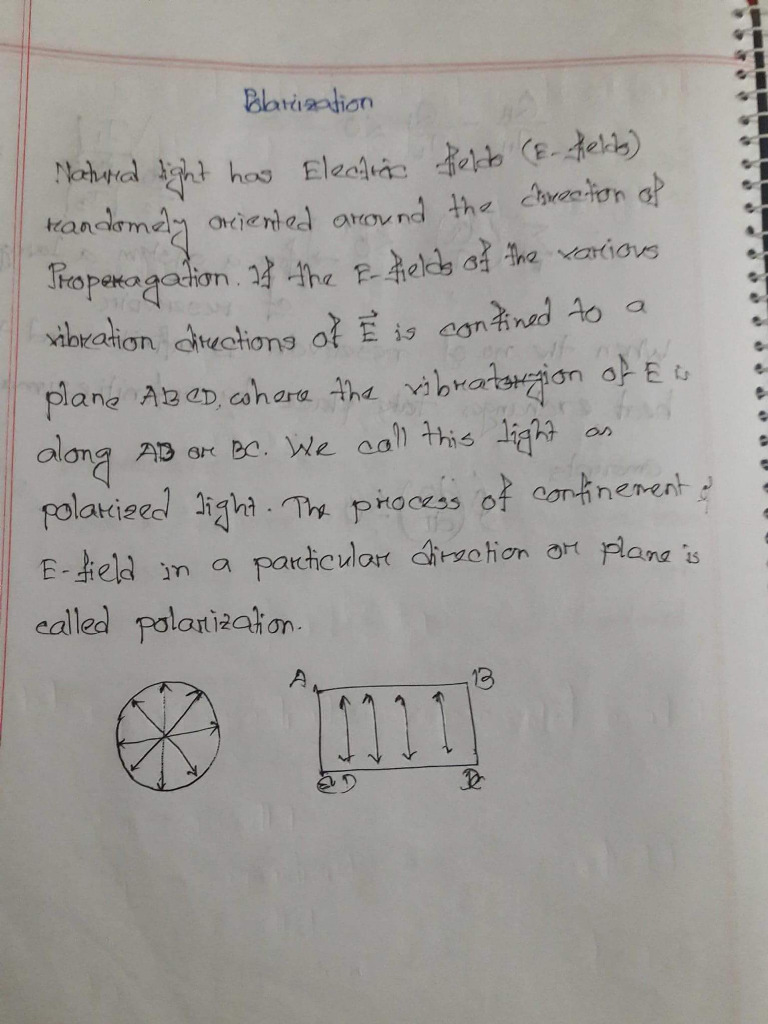 Polarization
Natural light has Electric fields (E-fields)
randomely oriented around the direction of
Properagation. If the E-fields of the various
vibration directions of E⃗ is confined to a
plane ABCD, where the vibration of E is
along AB or BC. We call this light as
polarized light. The process of confinement of
E-field in a particular direction or plane is
called polarization.
A B
D C